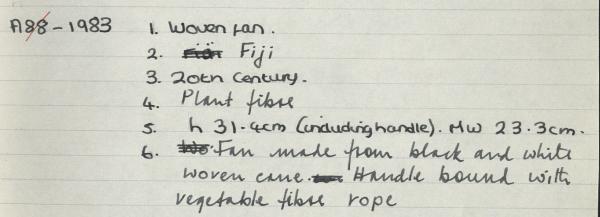 A88-1983 1. Woven fan.
2. Fiji
3. 20th Century.
4. Plant fibre
5. h 31.4cm (including handle). MW 23.3cm.
6. Fan made from black and white
woven cane. Handle bound with
vegetable fibre rope